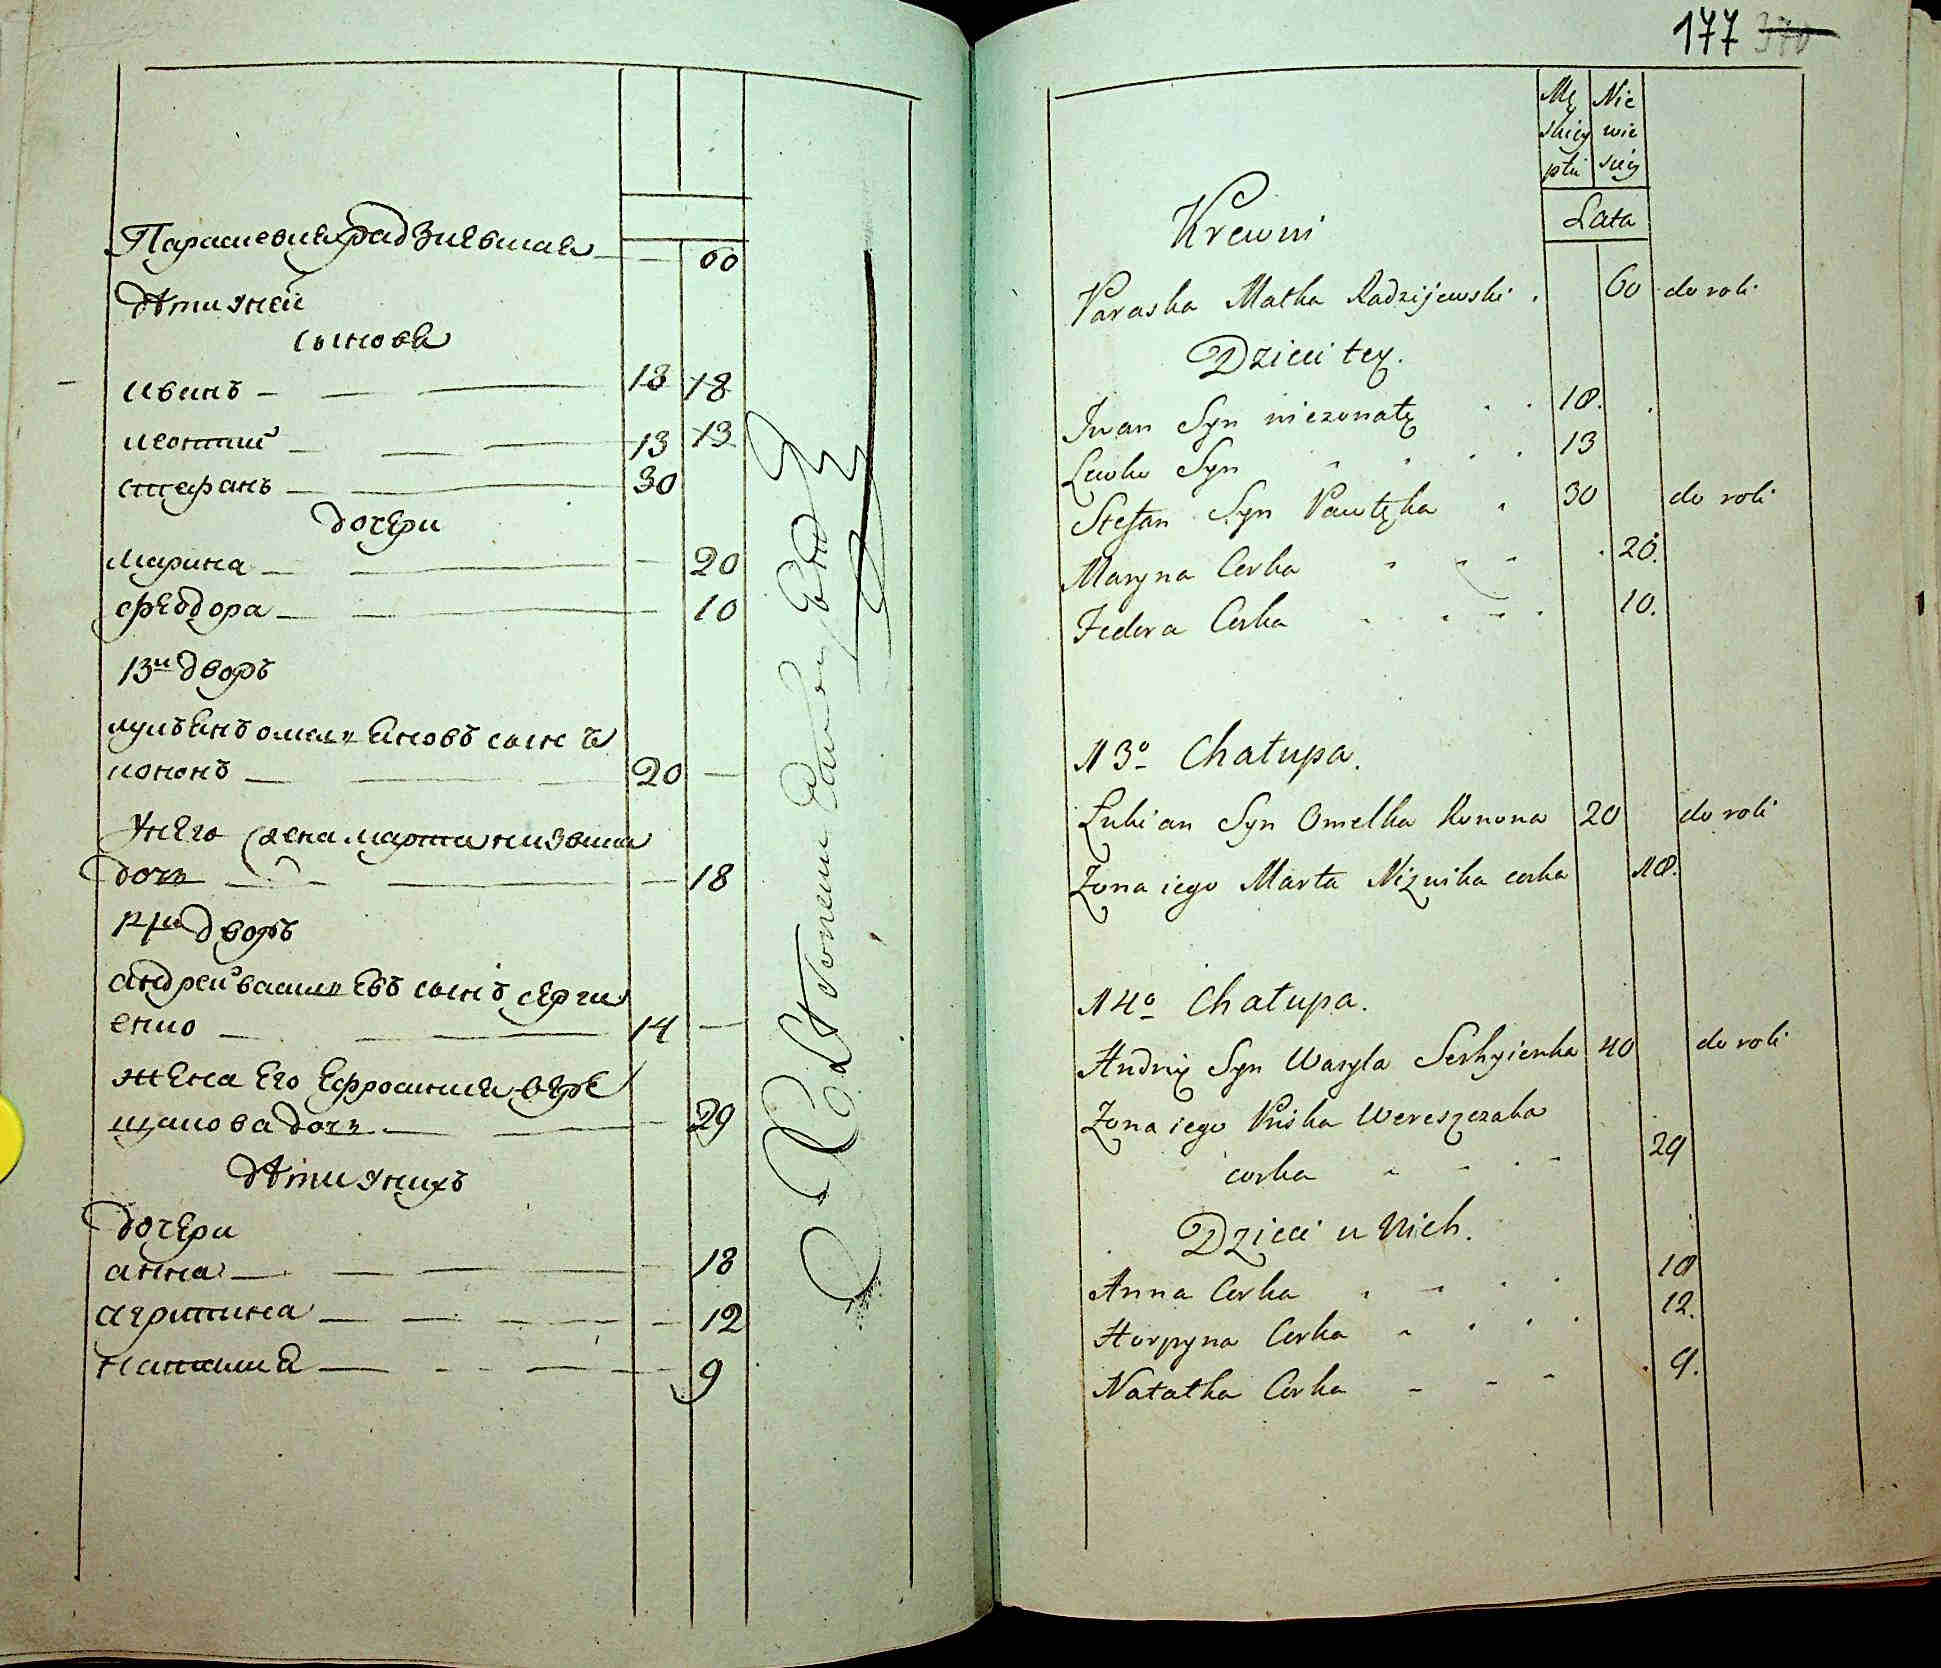 Параскевия Радзиевская — 60
дѣти у ней
сыновя
иванъ — — 18 18
леонтий — — — 13 13
стефанъ — — 30
дочери
марина — — — 20
феодора — — — 10
13й дворъ
лукъянъ омельяновъ сынъ
кононъ — — 20 —
у него жена марта низвика
дочь — — — 18
14й дворъ
андрей василъевъ сынъ серги
енко — — 14 —
жена его Ефросиния вере
щакова дочь — — — 29
дѣти у нихъ
дочери
анна — — — — 18
агрипина — — — — 12
наталия — — — — 9
177 370
Mę Nie
skiey wie
płci skiey
Lata
Krewni
Paraska Matka Radzijewski . 60 do roli
Dzieci tey.
Iwan Syn niezonaty . . 18.
Lewko Syn . . . 13
Stefan Syn Pawłyka . 30 do roli
Maryna Corka - - - . 20.
Fedora Corka . . - . 10.
13o Chałupa.
Łukian Syn Omelka Konona 20 do roli
Zona iego Marta Niznika corka 18.
14o Chałupa.
Andriy Syn Wasyla Serhyienka 40 do roli
Zona iego Priska Wereszczaka
corka - - . - 29
Dzieci u Nich.
Anna Corka . - . . 18
Horpyna Corka - . . . 12.
Natałka Corka - - - 9.